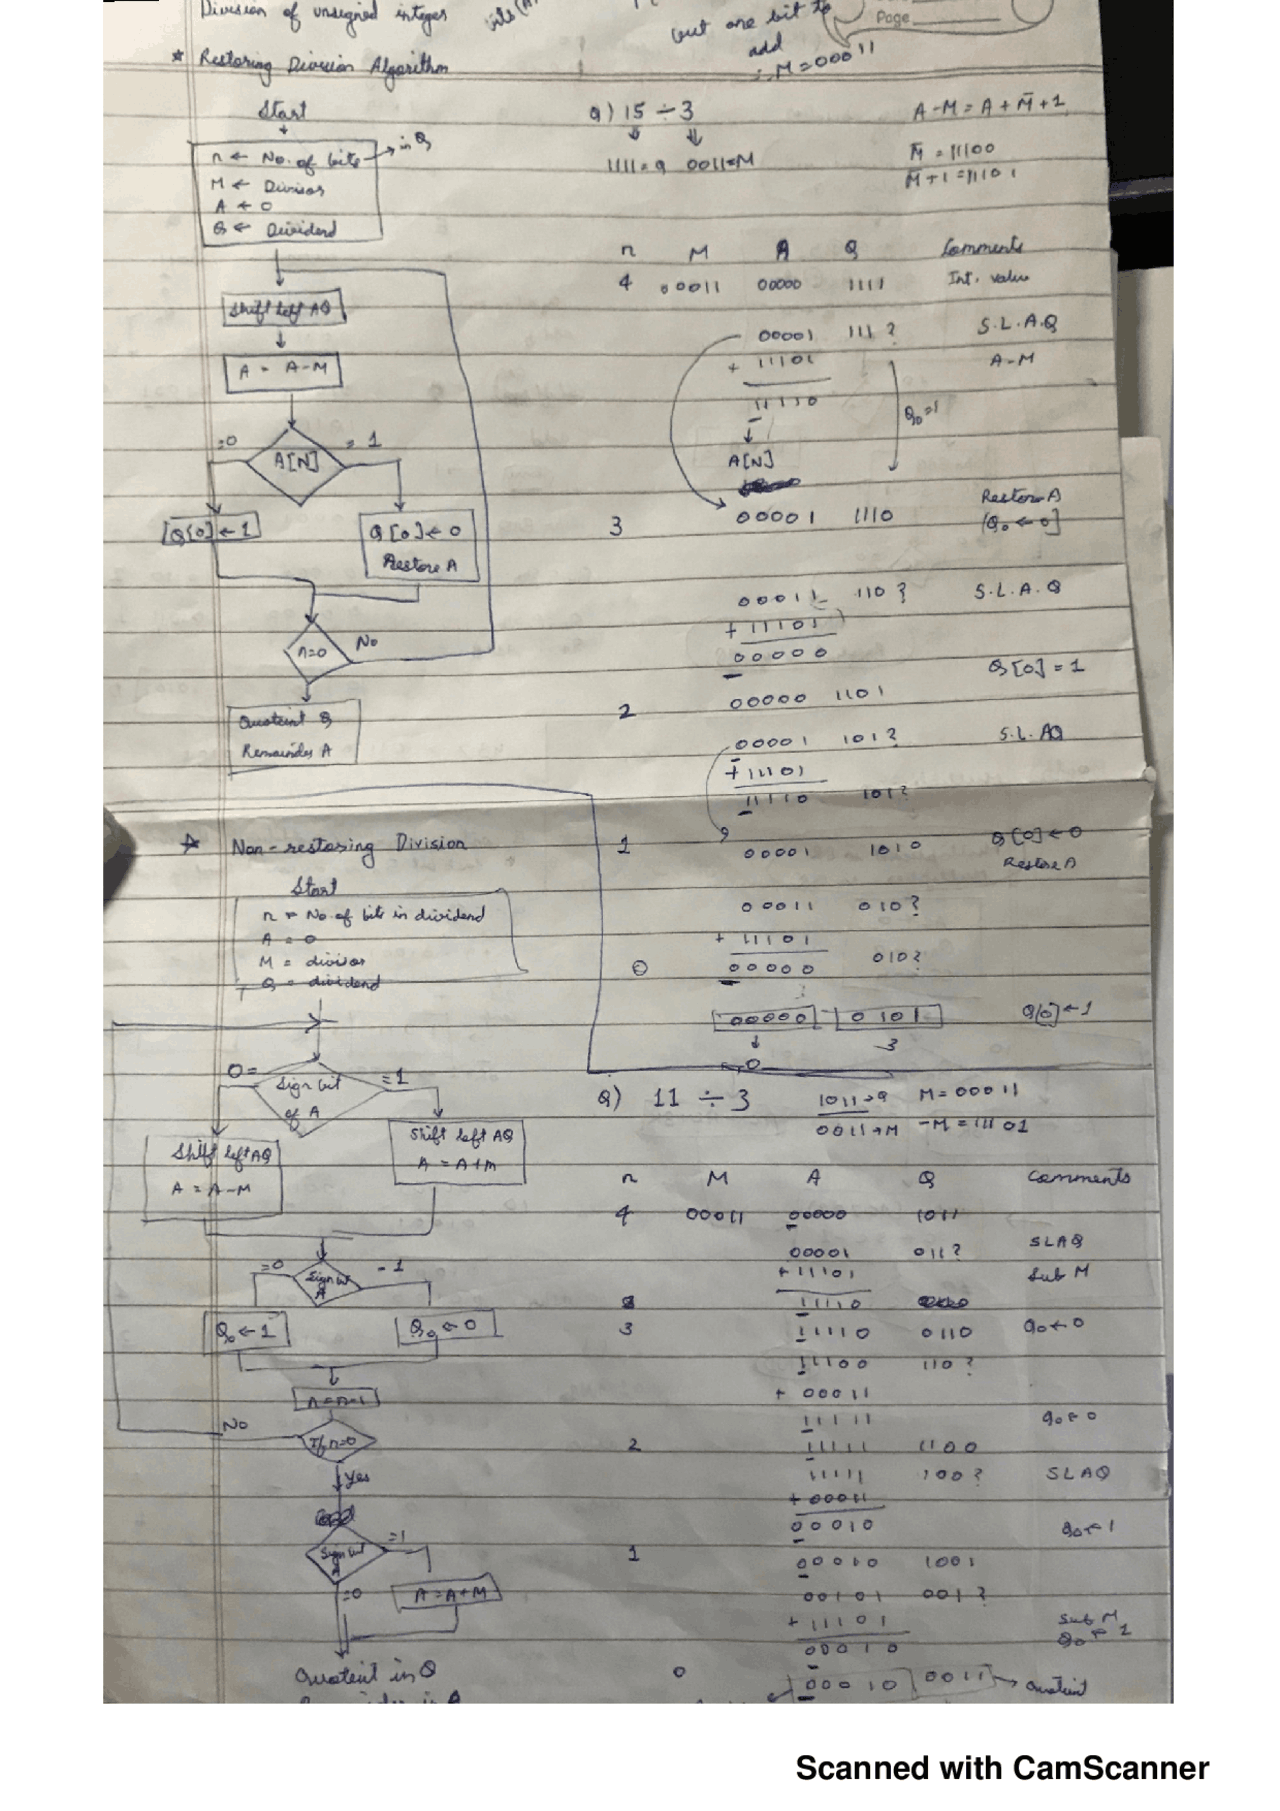 Division of unsigned integer
but one bit to
add
∴ M=00011
Page
* Restoring Division Algorithm
Start
n ← No. of bits → in Q
M ← Divisor
A ← 0
Q ← Dividend
Shift left AQ
A = A-M
=0
= 1
A[N]
[Q[0] ← 1
Q[0] ← 0
Restore A
n=0
No
Quoteint Q
Remainder A
Q) 15 ÷ 3
1111=Q 0011=M
A-M = A + M̄ + 1
M̄ = 11100
M̄+1 = 11101
n M A Q Comments
4 00011 00000 1111 Int. value
00001 111? S.L.A.Q
+ 11101 A-M
11110
Q₀=1
A[N]
Restore A
3 00001 1110 [Q₀ ← 0]
00011 110? S.L.A.Q
+ 11101
00000
Q[0] = 1
2 00000 1101
00001 101? S.L. AQ
+ 11101
11110 101?
1 00001 1010 Q[0] ← 0
Restore A
00011 010?
+ 11101
0 00000 010?
00000 0101 Q[0] ← 1
3
0
* Non-restoring Division
Start
n = No. of bits in dividend
A = 0
M = divisor
Q = dividend
0=
=1
Sign bit
of A
Shift left AQ
A = A-M
Shift left AQ
A = A+M
=0
-1
Sign bit
A
Q₀ ← 1
Q₀ ← 0
n=n-1
No
If n=0
Yes
Sign bit
A
=1
=0
A=A+M
Quoteint in Q
Q) 11 ÷ 3 1011→Q M= 00011
0011→M -M = 11101
n M A Q Comments
4 00011 00000 1011
00001 011? SLAQ
+ 11101 Sub M
11110
3 11110 0110 q₀ ← 0
11100 110?
+ 00011
11111 q₀ ← 0
2 11111 1100
11111 100? SLAQ
+ 00011
00010 q₀ ← 1
1 00010 1001
00101 001?
+ 11101 Sub M
00010 q₀ ← 1
0 00010 0011 → Quoteint
Scanned with CamScanner